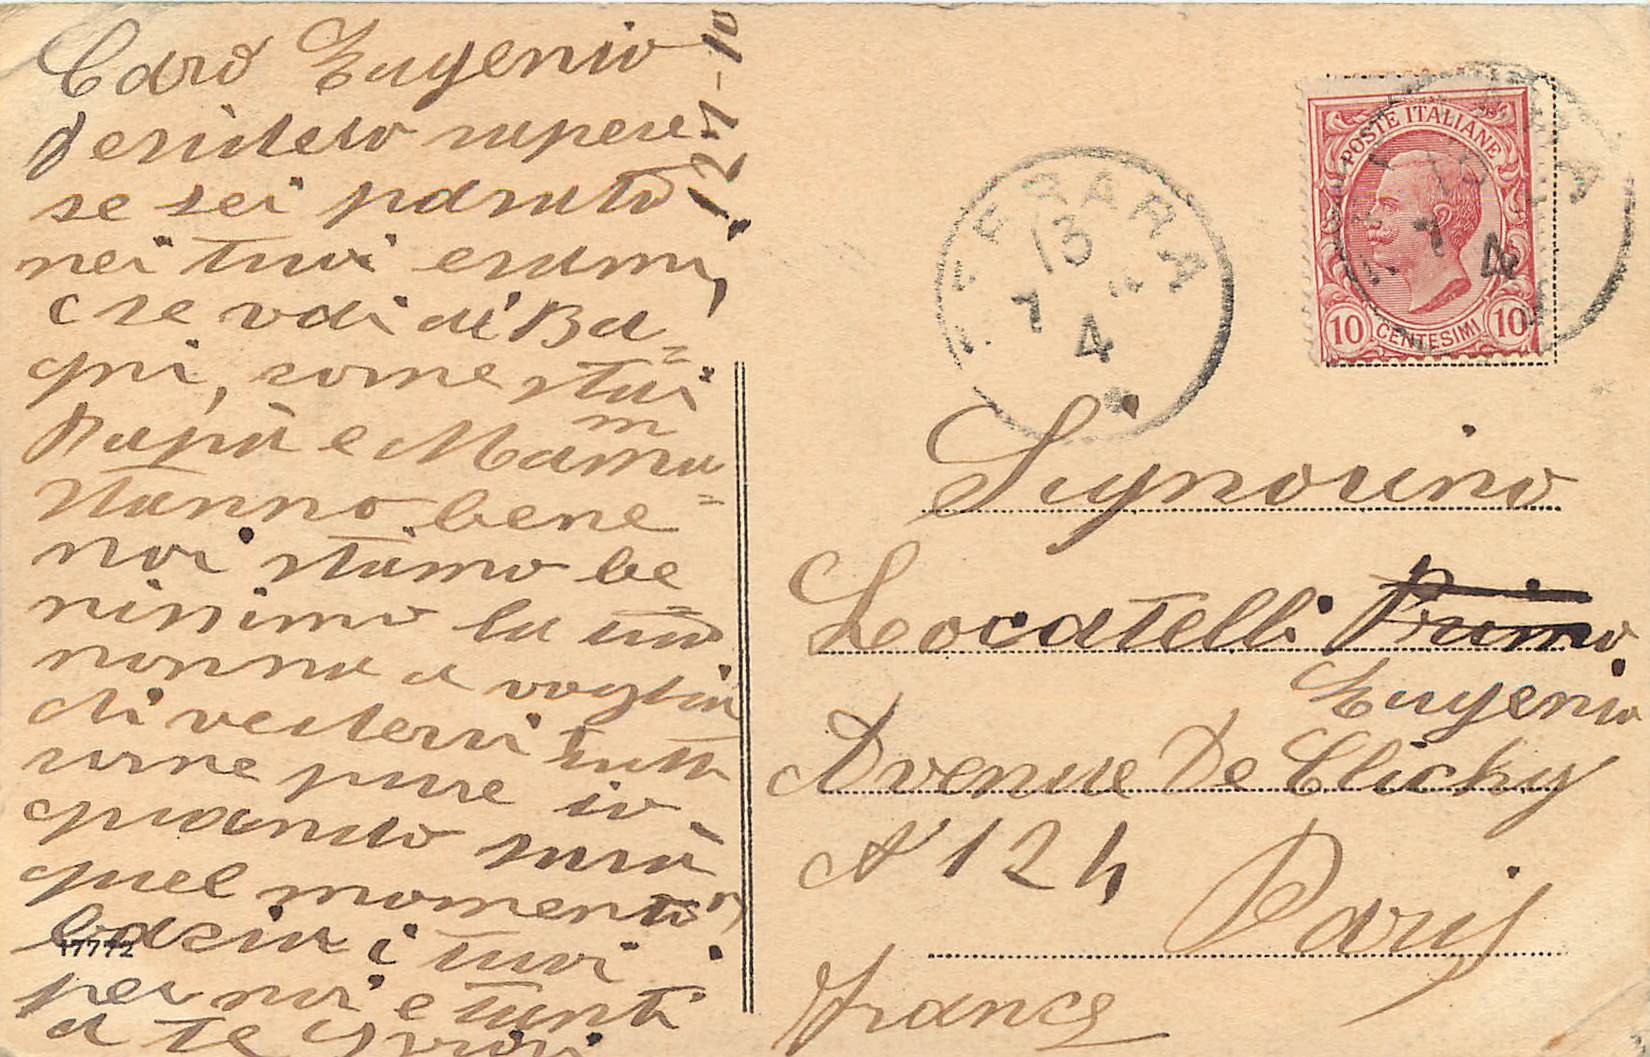 Caro Eugenio
desidero sapere
se sei passato
nei tuoi esami,
e se vai ai Ba=
gni, come stai
Papà e Mamma
stanno bene=
noi stiamo be
nissimo la tua
nonna a voglia
di vedervi tutti
come pure io
quando sarà
quel momento?
bacia i tuoi
per noi e tanti
a te
12-7-10
17772
FERRARA
13
7
4
POSTE ITALIANE
10 CENTESIMI 10
Signorino
Locatelli Primo
Eugenio
Avenue De Clichy
N 124
Paris
France